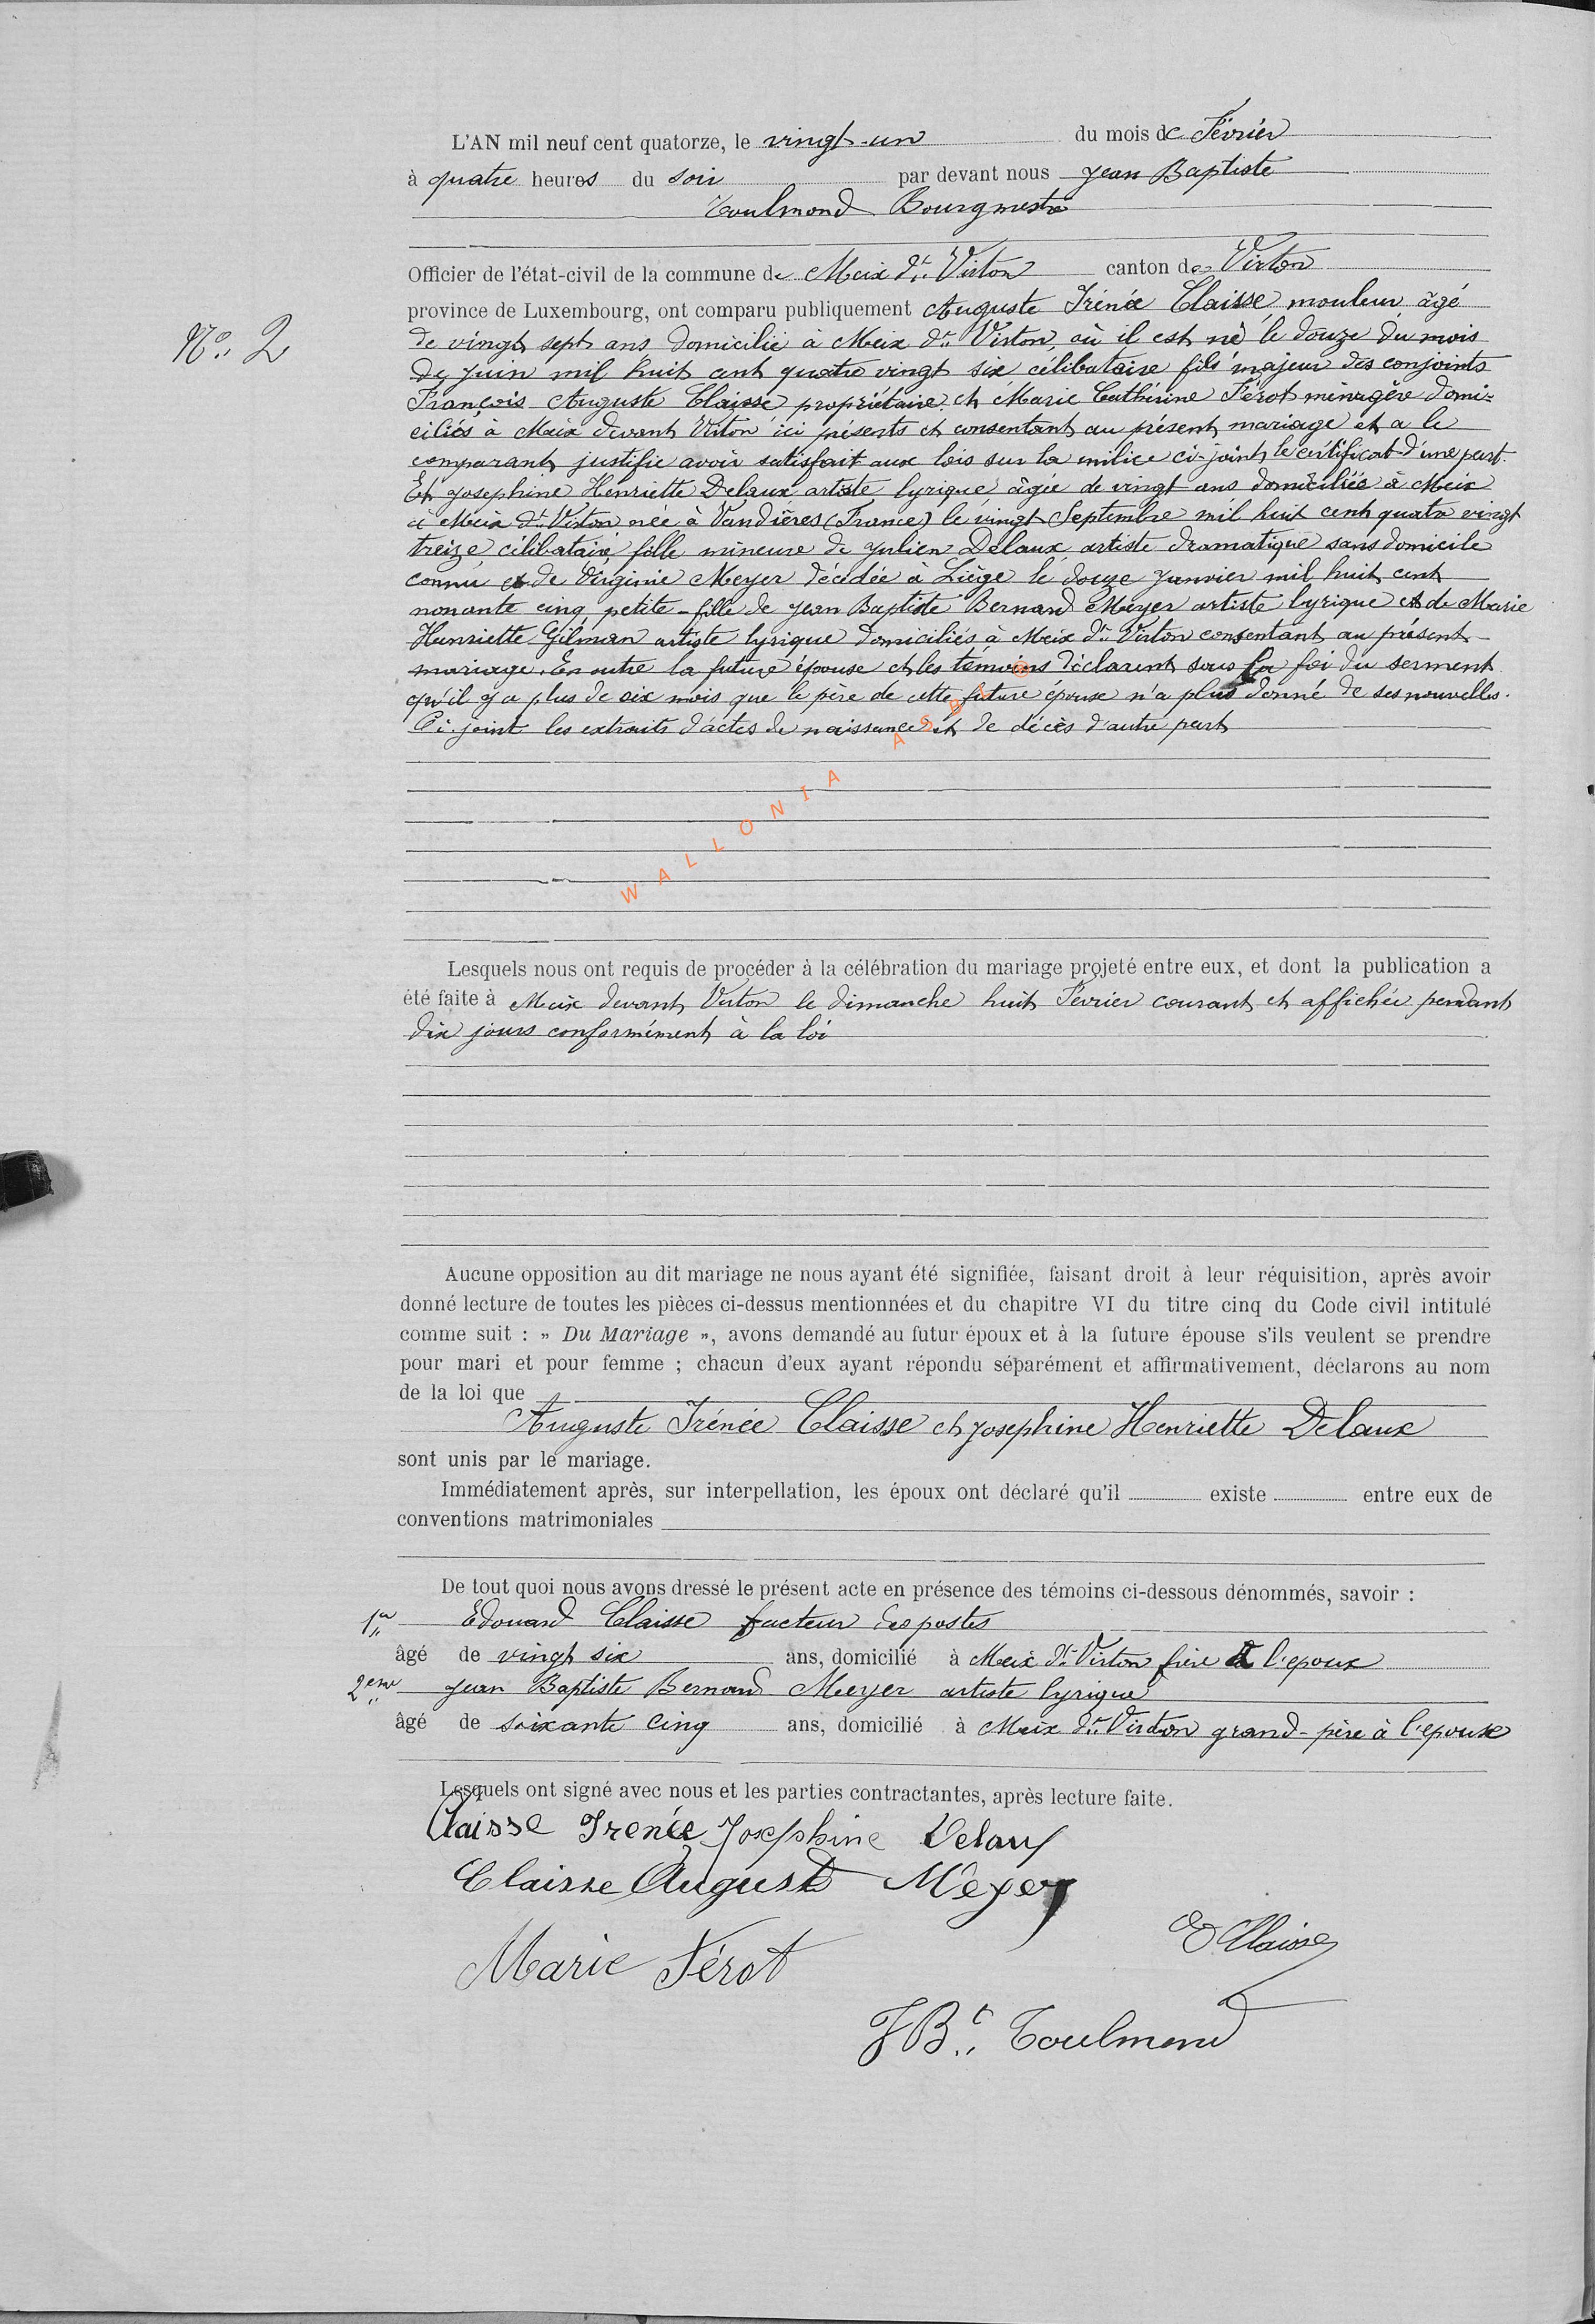 L'AN mil neuf cent quatorze, le vingt-un du mois de Février
à quatre heures du soir par devant nous Jean Baptiste
Toulmond Bourgmestre
Officier de l'état-civil de la commune de Meix dt Virton canton de Virton
province de Luxembourg, ont comparu publiquement Auguste Irénée Claisse, mouleur, âgé
No 2
de vingt sept ans domicilié à Meix dt Virton, où il est né le douze du mois
de Juin mil huit cent quatre vingt six célibataire fils majeur des conjoints
François Auguste Claisse propriétaire et Marie Cathérine Férot ménagère domi-
ciliés à Meix devant Virton ici présents et consentant au présent mariage et a le
comparant justifié avoir satisfait aux lois sur la milice ci-joint le certificat d'une part.
Et Josephine Henriette Delaux artiste lyrique âgée de vingt ans domiciliée à Meix
à Meix dt Virton née à Vandières (France) le vingt Septembre mil huit cent quatre vingt
treize célibataire fille mineure de Julien Delaux artiste dramatique sans domicile
connu et de Virginie Meyer décédée à Liège le douze Janvier mil huit cent
nonante cinq petite-fille de Jean Baptiste Bernard Meyer artiste lyrique et de Marie
Henriette Gilman artiste lyrique domiciliés à Meix dt Virton consentant au présent
mariage. En outre la future épouse et les témoins déclarent sous la foi du serment
qu'il y a plus de six mois que le père de cette future épouse n'a plus donné de ses nouvelles.
Ci-joint les extraits d'actes de naissance et de décès d'autre part
WALLONIA ASBL ©
Lesquels nous ont requis de procéder à la célébration du mariage projeté entre eux, et dont la publication a
été faite à Meix devant Virton le dimanche huit Février courant et affichée pendant
dix jours conformément à la loi
Aucune opposition au dit mariage ne nous ayant été signifiée, faisant droit à leur réquisition, après avoir
donné lecture de toutes les pièces ci-dessus mentionnées et du chapitre VI du titre cinq du Code civil intitulé
comme suit : » Du Mariage », avons demandé au futur époux et à la future épouse s'ils veulent se prendre
pour mari et pour femme ; chacun d'eux ayant répondu séparément et affirmativement, déclarons au nom
de la loi que
Auguste Irénée Claisse et Josephine Henriette Delaux
sont unis par le mariage.
Immédiatement après, sur interpellation, les époux ont déclaré qu'il existe entre eux de
conventions matrimoniales
De tout quoi nous avons dressé le présent acte en présence des témoins ci-dessous dénommés, savoir :
1er Edouard Claisse facteur des postes
âgé de vingt six ans, domicilié à Meix dt Virton frère à l'epoux
2eme Jean Baptiste Bernard Meyer artiste lyrique
âgé de soixante cinq ans, domicilié à Meix dt Virton grand-père à l'epouse
Lesquels ont signé avec nous et les parties contractantes, après lecture faite.
Claisse Irenée Josephine Delaux
Claisse August Meyer
E Claisse
Marie Férot
JBt Toulmond